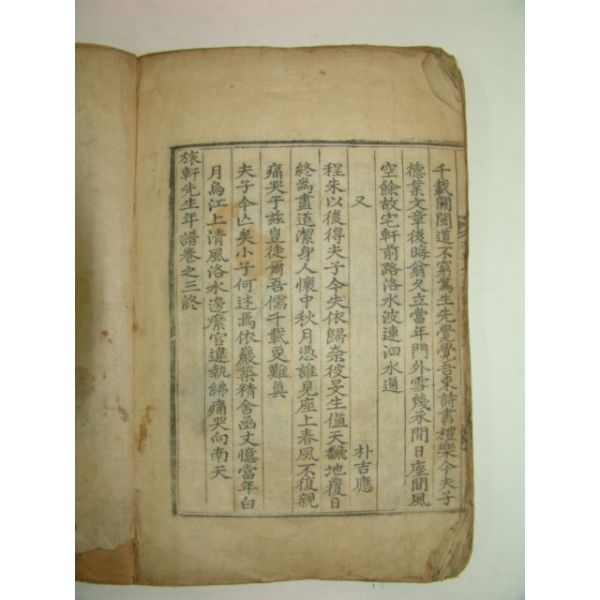 千載關閩道不窮篤生先覺覺吾東詩書禮樂今夫子
德業文章後晦翁久立當年門外雪幾承間日座間風
空餘故宅軒前路洛水波連泗水通
又 朴吉應
程朱以後得夫子今失依歸奈彼旻生値天飜地覆日
終爲盡道潔身人懷中秋月憑誰見座上春風不復親
痛哭于玆豈徒爾吾儒千載更難眞
夫子今亡矣小子何述焉依巖築精舍函丈憶當年白
月烏江上淸風洛水邊縻官違執紼痛哭向南天
旅軒先生年譜卷之三終